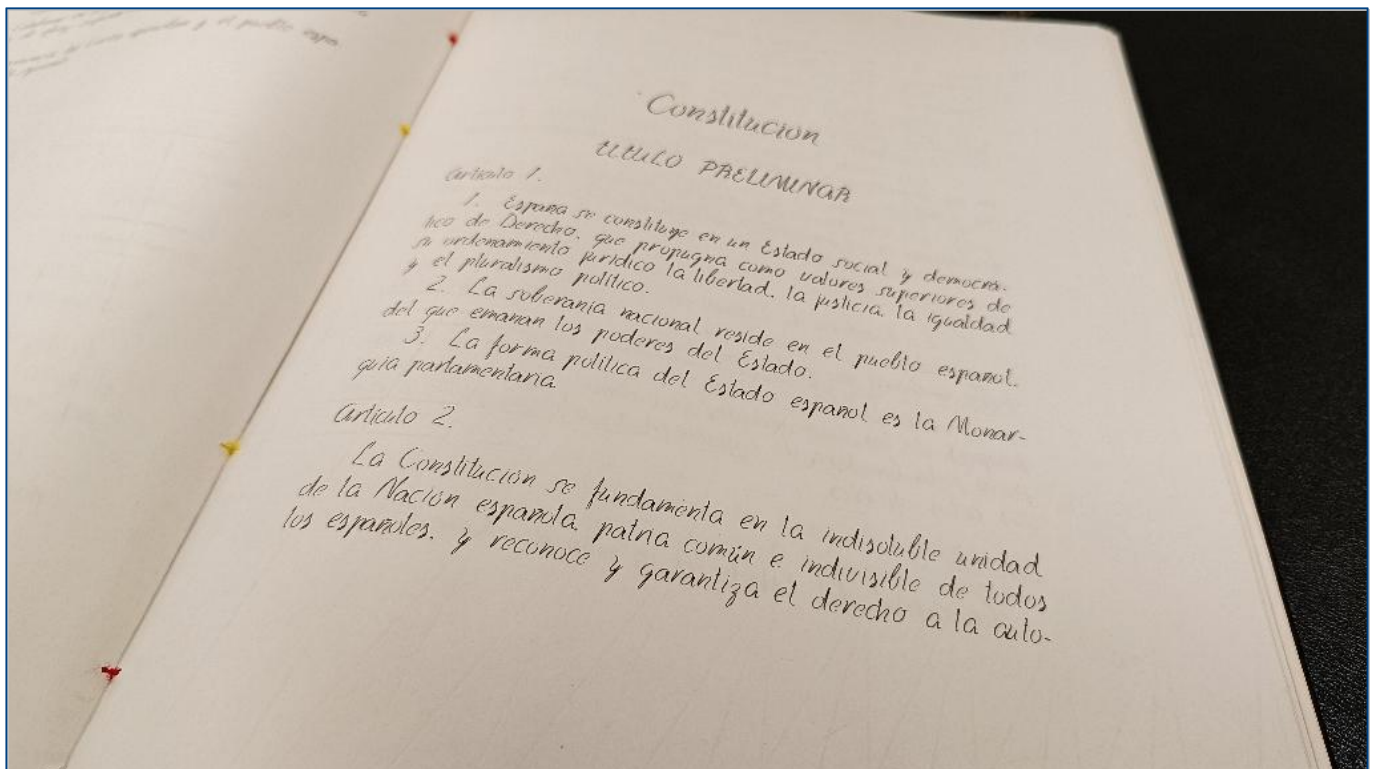 y el pueblo espa
Constitución
TITULO PRELIMINAR
Artículo 1.
1. España se constituye en un Estado social y democrá-
tico de Derecho, que propugna como valores superiores de
su ordenamiento jurídico la libertad, la justicia, la igualdad
y el pluralismo político.
2. La soberanía nacional reside en el pueblo español,
del que emanan los poderes del Estado.
3. La forma política del Estado español es la Monar-
quía parlamentaria
Artículo 2.
La Constitución se fundamenta en la indisoluble unidad
de la Nación española, patria común e indivisible de todos
los españoles, y reconoce y garantiza el derecho a la auto-